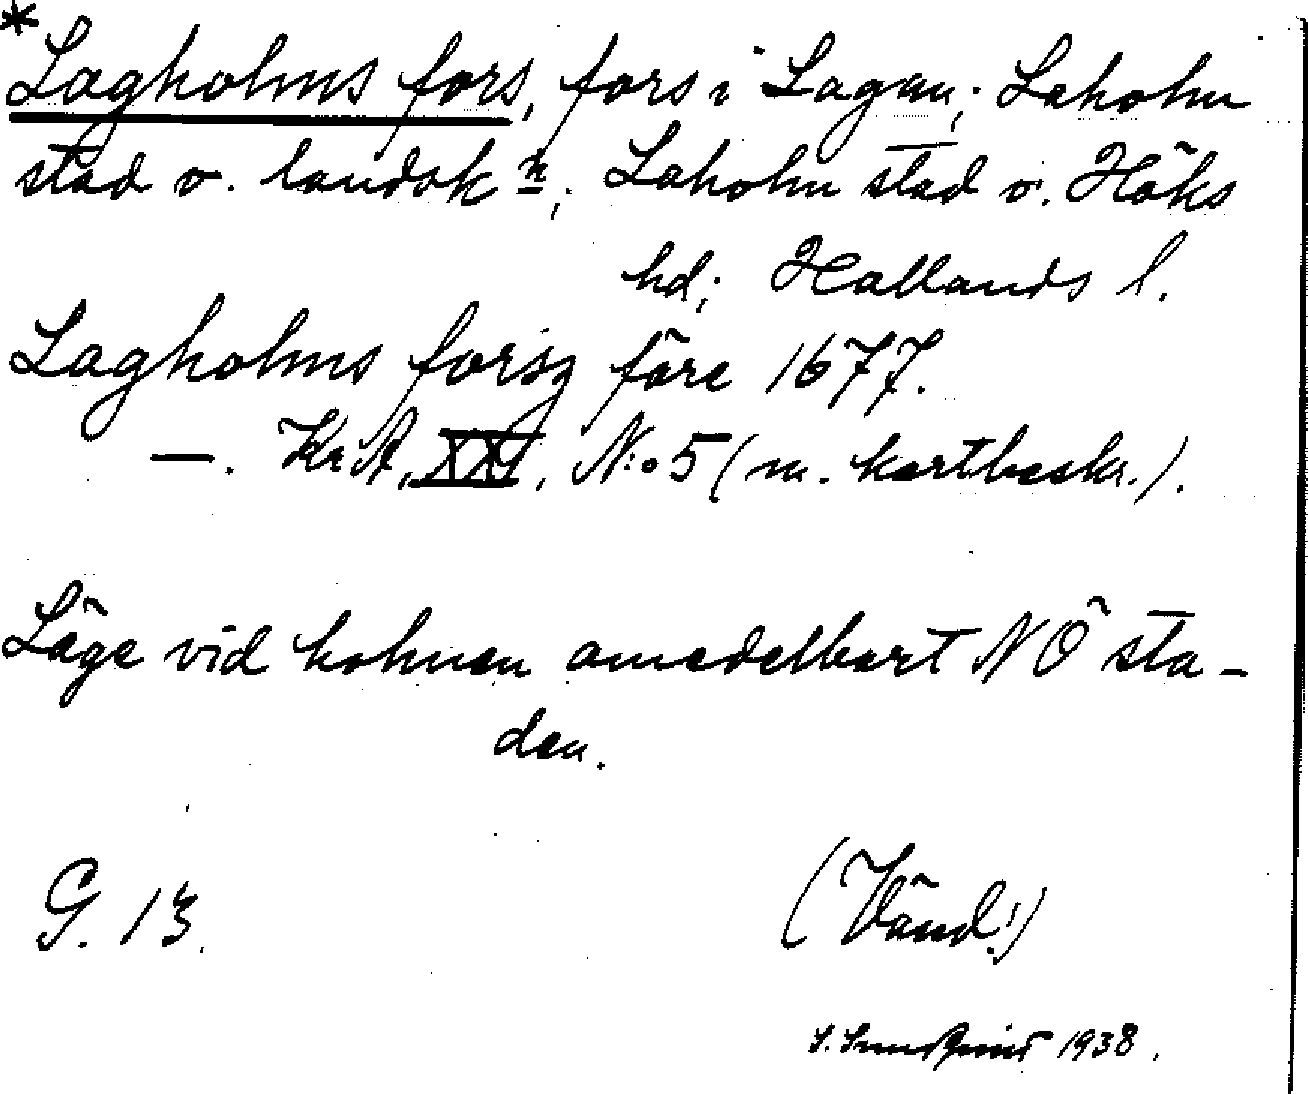 *Lagholms fors, fors i Lagan; Laholm
stad o. landsk n; Laholm stad o. Höks
hd; Hallands l.
Lagholms forsz före 1677.
—. Kr.A, XXI, N:o 5 (m. kartbeskr.).
Läge vid holmen omedelbart NÖ sta-
den.
G. 13.
(Vänd!)
1938.